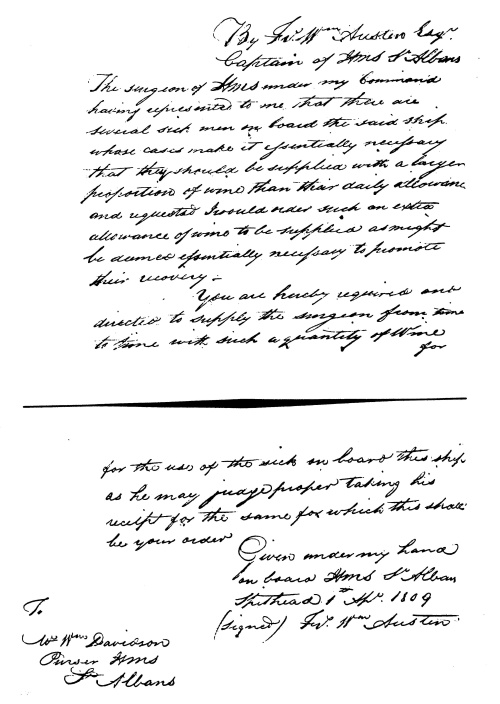 By Fr. Wm Austen Esqr.
Captain of Hms St Albans
The surgeon of Hms under my Command
having represented to me that there are
several sick men on board the said ship
whose cases make it essentially necessary
that they should be supplied with a larger
proportion of wine than their daily allowance
and requested I would order such an extra
allowance of wine to be supplied as might
be deemed essentially necessary to promote
their recovery.
You are hereby required and
directed to supply the surgeon from time
to time with such a quantity of Wine
for
for the use of the sick on board this ship
as he may judge proper taking his
receipt for the same for which this shall
be your order
Given under my hand
on board Hms St Alban
Spithead 1st Apr. 1809
(signed) Fr. Wm Austen
To
Mr Wm Davidson
Purser Hms
St Albans